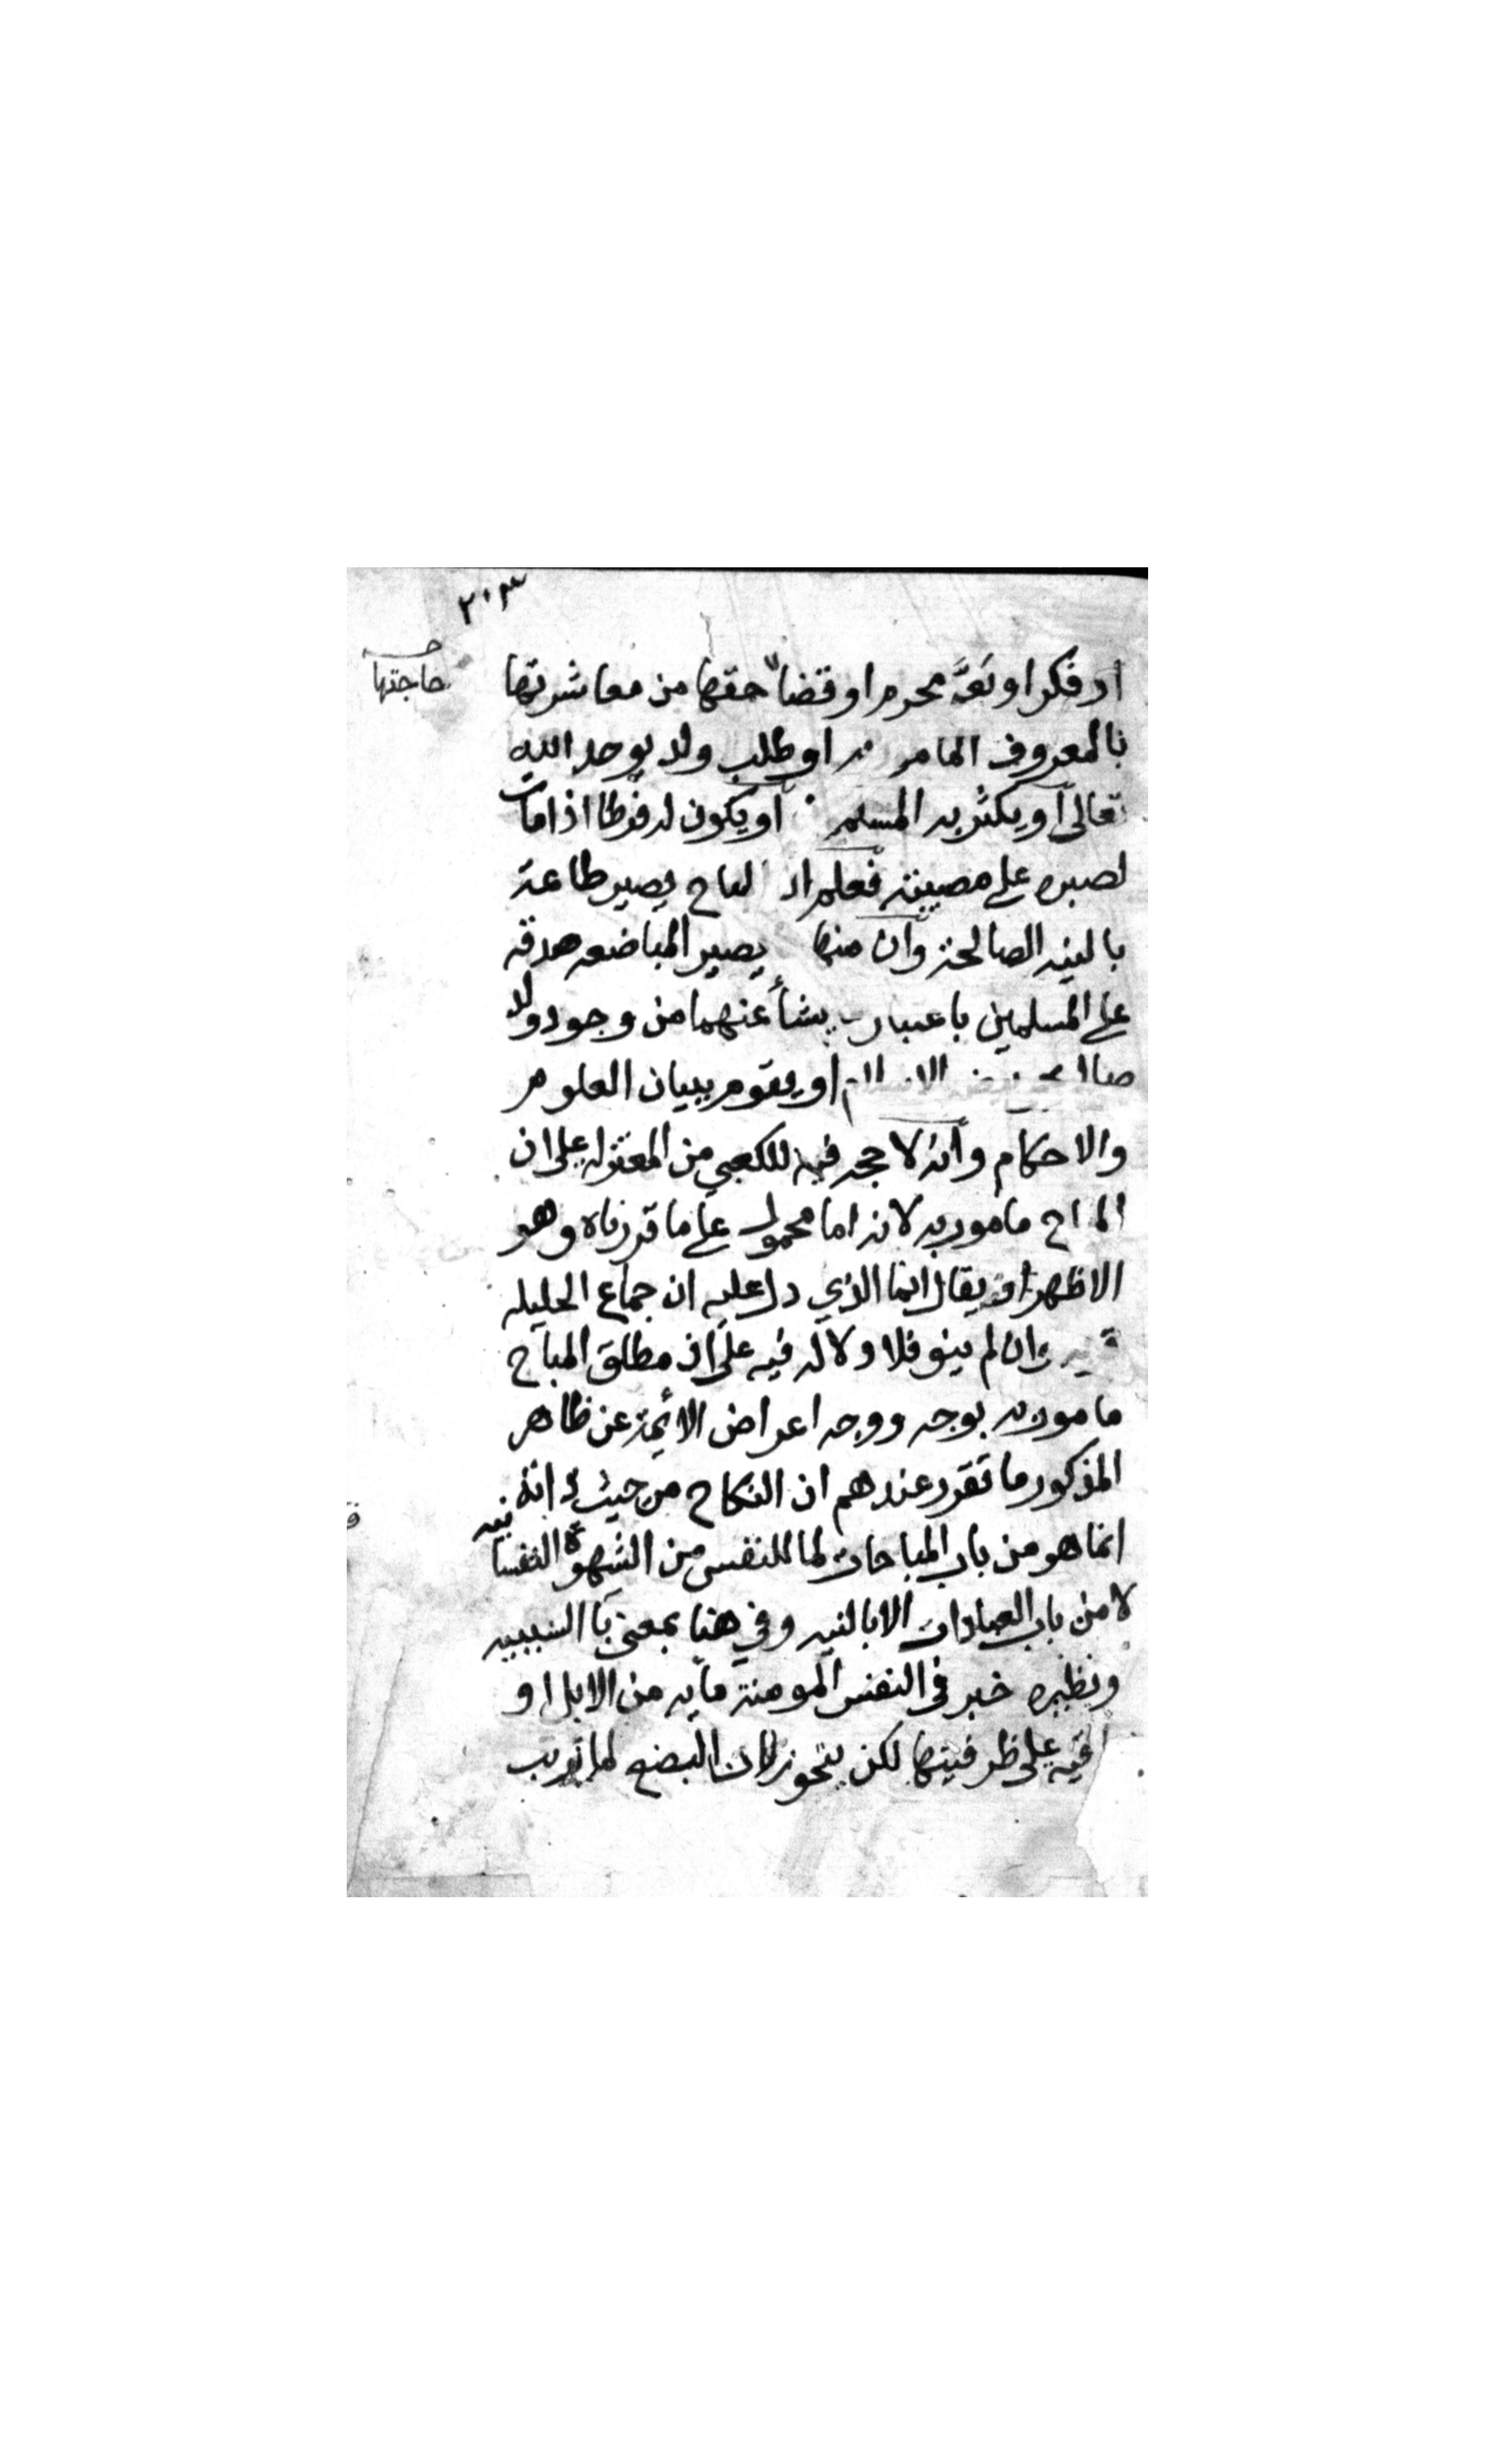 ٢٠٣
حاجتها
او فكر او نَعَّ محرم او قضاء حقها من معاشرتها
بالمعروف المامر به او طلب ولد يوحد الله
تعالى او يكثر به المسلم او يكون له فرطا اذا مات
لصبره على مصيبته فعلم ان يصير طاعة
بالنيه الصالحة وان منها يصير المباضعه صدقه
على المسلمين باعتبار ينشأ عنهما من وجود ولد
او يقوم ببيان العلوم
والاحكام وانه لا حجه فيه للكعبي من المعتزله على ان
المباح مامور به لانه اما محمول على ما قررناه وهو
الاظهر او يقال انما الذي دل عليه ان جماع الحليله
وان لم ينو فلا دلاله فيه على ان مطلق المباح
مامور به بوجه ووجه اعراض الأئمة عن ظاهر
المذكور ما تقرر عندهم ان النكاح من حيث ذاته
انما هو من باب المباحات لما للنفس من الشهوة النفسانيه
لا من باب العبادات الا بالنيه وفي هنا بمعنى با السببيه
ونظيره خبر في النفس المومنة مايه من الابل او
على ظرفيتها لكن بتجوز لان البضع لما ترتب